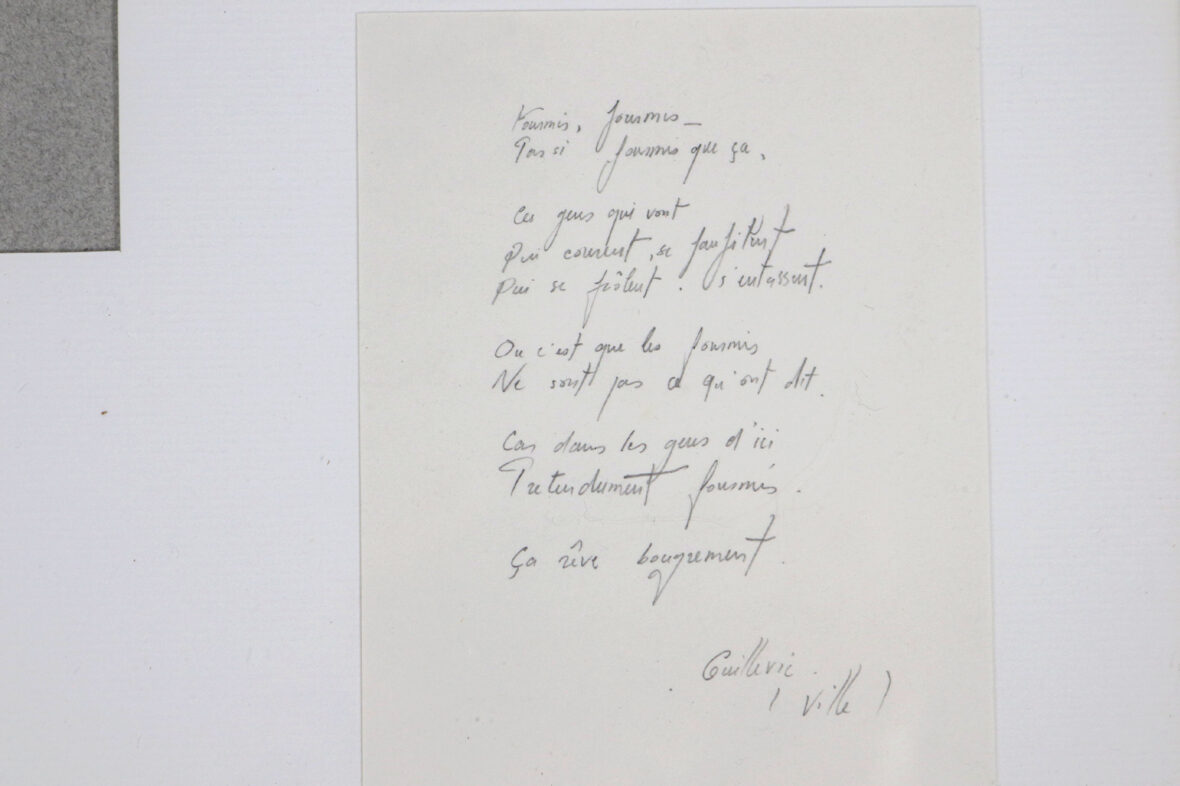 Fourmis, fourmis –
Pas si fourmis que ça,
Ces gens qui vont
Qui courent, se faufilent
Qui se frôlent. s'entassent.
Ou c'est que les fourmis
Ne sont pas ce qu'ont dit.
Car dans les gens d'ici
Pretendument fourmis.
Ça rêve bougrement.
Guillevic.
( Ville )